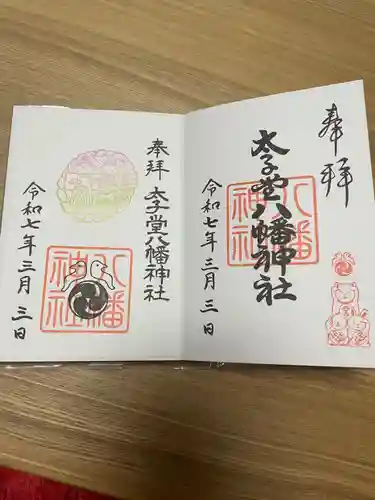 奉拝
太子堂八幡神社
八幡神社
令和七年三月三日
奉拝
太子堂八幡神社
八幡神社
令和七年三月三日